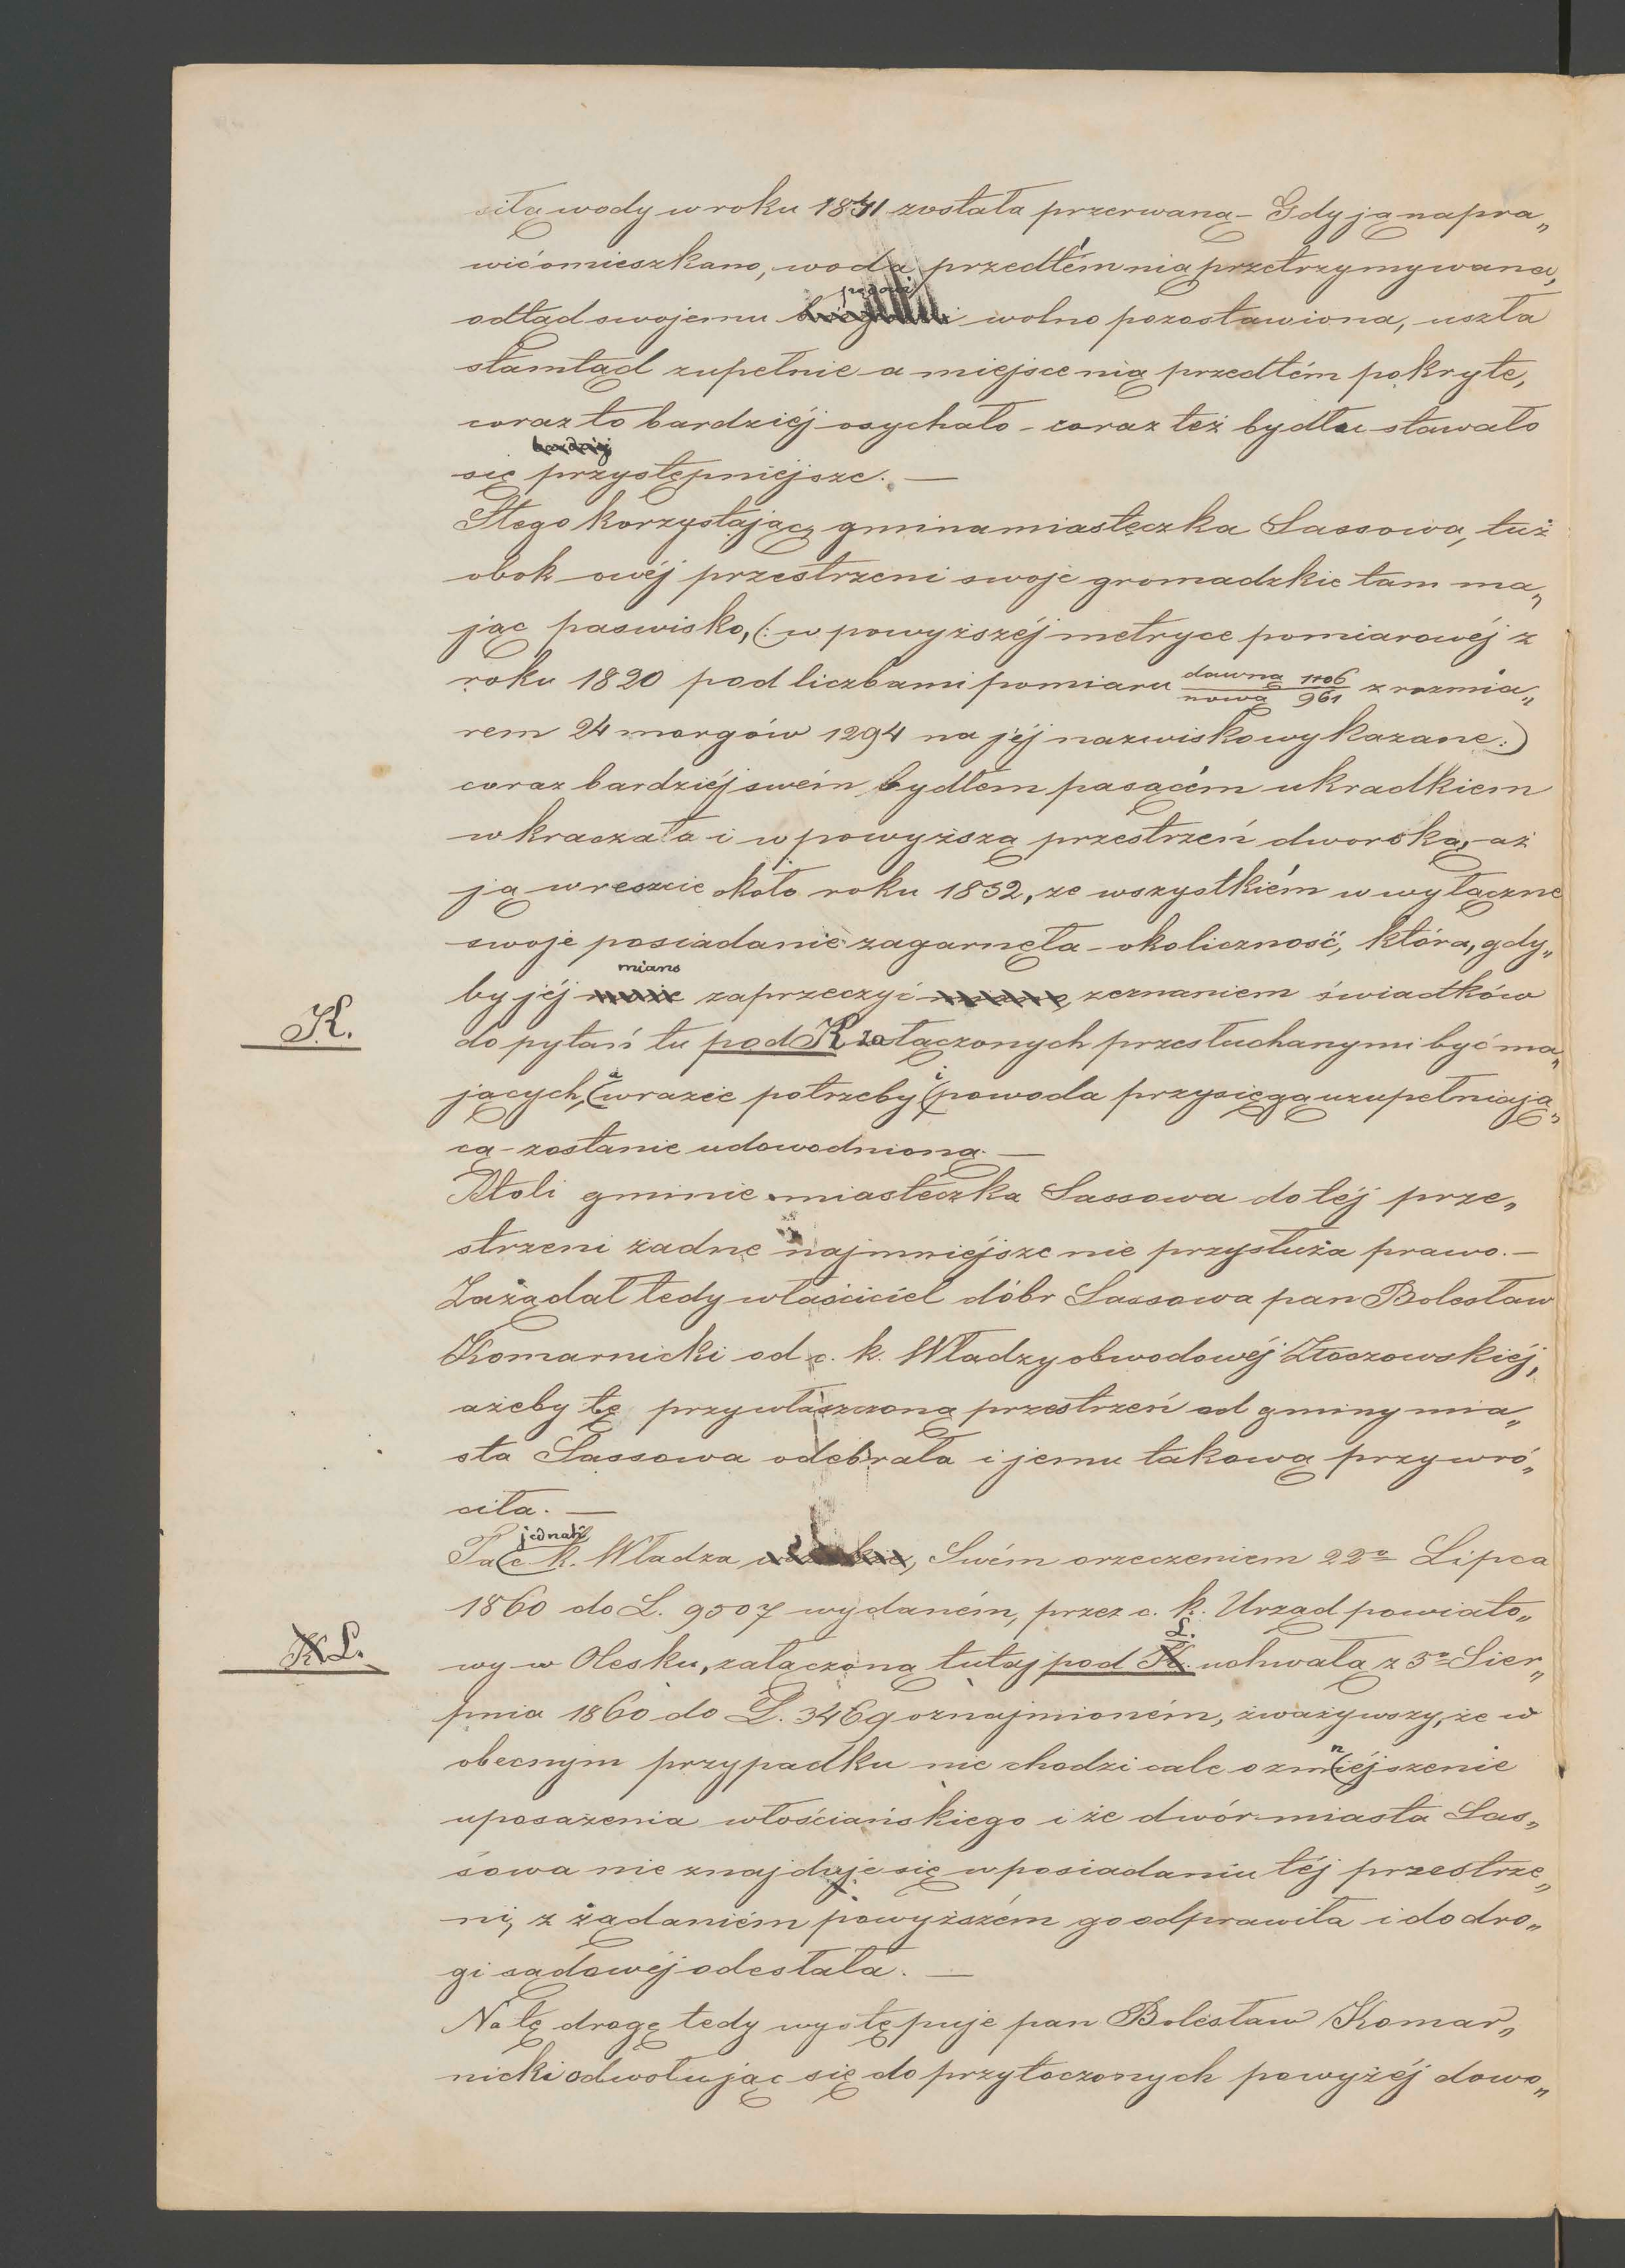 siłą wody w roku 1841 została przerwaną - Gdy ją napra„
wić omieszkano, woda przedtém nią przetrzymywana,
odtąd swojemu prądowi wolno pozostawiona, uszła
stamtąd zupełnie a miejsce nią przedtém pokryte,
coraz to bardziéj osychało - coraz też bydłu stawało
się przystępniejsze. —
Z tego korzystając gmina miasteczka Sassowa, tuż
obok owéj przestrzeni swoje gromadzkie tam ma„
jąc paswisko, (: w powyższéj metryce pomiarowéj z
roku 1820 pod liczbami pomiaru dawną 1106 / nową 961 z rozmia„
rem 24 morgów 1294 na jéj nazwisko wykazane :)
coraz bardziéj swém bydłem pasącém ukradkiem
wkraczała i w powyższą przestrzeń dworską, aż
ją wreszcie około roku 1852, ze wszystkiém w wyłączne
swoje posiadanie zagarnęła - okoliczność, która, gdy„
by jéj miano zaprzeczyć zeznaniem świadków
K.
do pytań tu pod K załączonych przesłuchanymi być ma„
jących, a w razie potrzeby i powoda przysięgą uzupełniają„
cą - zostanie udowodnioną. —
Atoli gminie miasteczka Sassowa do téj prze„
strzeni żadne najmniéjsze nie przysłuża prawo. —
Zażądał tedy właściciel dóbr Sassowa pan Bolesław
Komarnicki od c. k. Władzy obwodowéj Złoczowskiéj,
ażeby tę przywłaszczoną przestrzeń od gminy mia„
sta Sassowa odebrała i jemu takową przywró„
ciła. —
Ta jednak c. k. Władza Swém orzeczeniem 22º Lipca
1860 do L. 9507 wydaném, przez c. k. Urząd powiato„
K L.
wy w Olesku, załączoną tutaj pod L. uchwałą z 5º Sier„
pnia 1860 do L. 3469 oznajmioném, zważywszy, że w
obecnym przypadku nie chodzi całe o zmniéjszenie
uposażenia włościańskiego i że dwór miasta Sas„
sowa nie znajduje się w posiadaniu téj przestrze„
ni, z żądaniém powyższém go odprawiła i do dro„
gi sądowéj odesłała. —
Na tę drogę tedy występuje pan Bolesław Komar„
nicki odwołując się do przytoczonych powyżéj dowo„